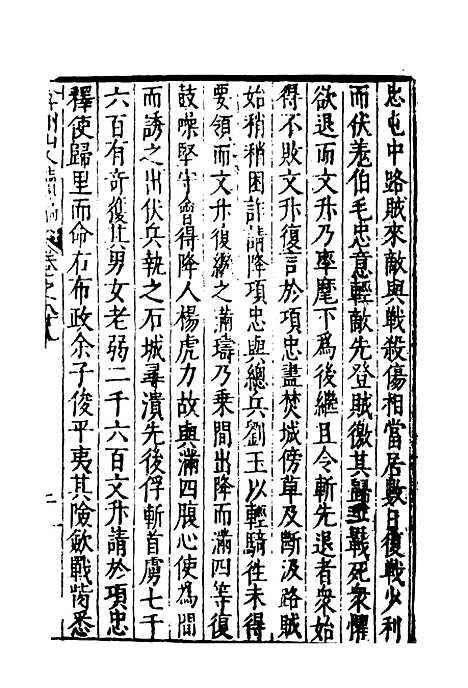 忠屯中路賊來敵與戰殺傷相當居數日復戰少利
而伏羌伯毛忠意輕敵先登賊徼其歸玊戰死衆懼
欲退而文升乃率麾下爲後繼且令斬先退者衆始
得不敗文升復言於項忠盡焚城傍草及斷汲路賊
始稍稍困詐請降項忠與總兵劉玉以輕騎徃未得
要領而文升復繼之滿璹乃乗間出降而滿四等復
鼓噪堅守會得降人楊虎力故與滿四腹心使爲間
而誘之出伏兵執之石城尋潰先後俘斬首虜七千
六百有奇復其男女老弱二千六百文升請於項忠
釋使歸里而命右布政余子俊平夷其險歛戰骨悉
弇州山人續稿 卷之八十八